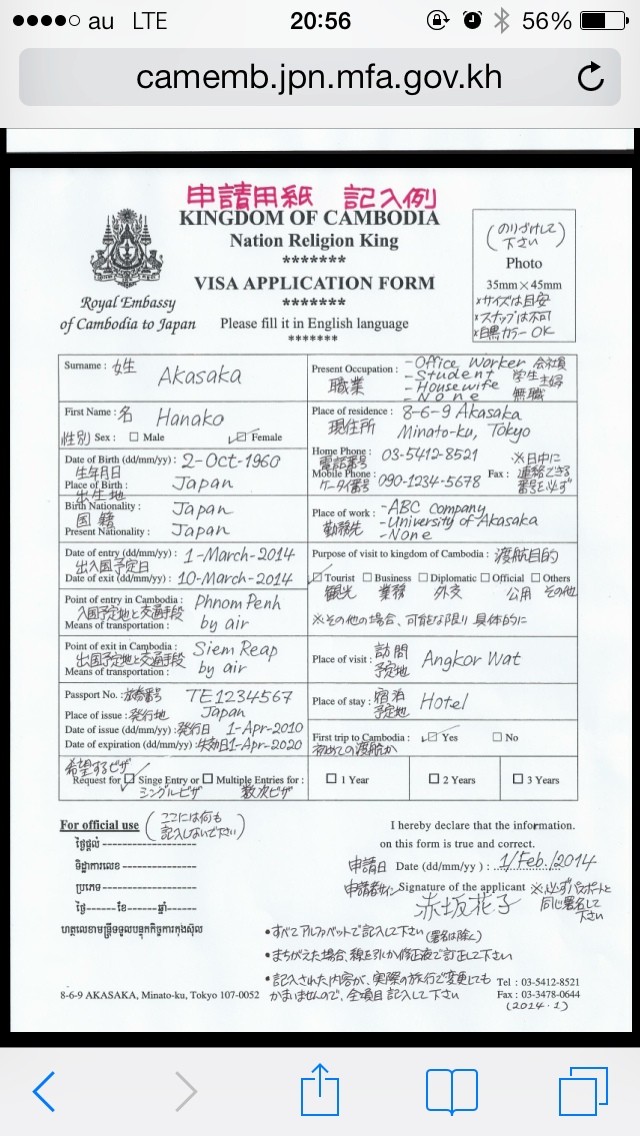 au LTE 20:56 56%
camemb.jpn.mfa.gov.kh
申請用紙 記入例
KINGDOM OF CAMBODIA
Nation Religion King
*******
VISA APPLICATION FORM
*******
Please fill it in English language
*******
Royal Embassy
of Cambodia to Japan
(のりづけして下さい)
Photo
35mm×45mm
*サイズは目安
*スナップは不可
*白黒カラーOK
Surname : 姓 Akasaka
First Name : 名 Hanako
性別 Sex : Male Female
Date of Birth (dd/mm/yy) : 2-Oct-1960
生年月日
Place of Birth : Japan
出生地
Birth Nationality : Japan
国籍
Present Nationality : Japan
Date of entry (dd/mm/yy) : 1-March-2014
出入国予定日
Date of exit (dd/mm/yy) : 10-March-2014
Point of entry in Cambodia : Phnom Penh
入国予定地と交通手段
Means of transportation : by air
Point of exit in Cambodia : Siem Reap
出国予定地と交通手段
Means of transportation : by air
Passport No. : 旅券番号 TE1234567
Place of issue : 発行地 Japan
Date of issue (dd/mm/yy) : 発行日 1-Apr-2010
Date of expiration (dd/mm/yy) : 失効日 1-Apr-2020
Present Occupation : -Office Worker 会社員
職業 -Student 学生
-Housewife 主婦
-None 無職
Place of residence : 8-6-9 Akasaka
現住所 Minato-ku, Tokyo
Home Phone : 03-5412-8521
電話番号
Mobile Phone : 090-1234-5678 Fax :
ケータイ番号
※日中に
連絡できる
番号を必ず
Place of work : -ABC Company
勤務先 -University of Akasaka
-None
Purpose of visit to kingdom of Cambodia : 渡航目的
Tourist Business Diplomatic Official Others
観光 業務 外交 公用 その他
※その他の場合、可能な限り具体的に
Place of visit : 訪問予定地 Angkor Wat
Place of stay : 宿泊予定地 Hotel
First trip to Cambodia : Yes No
初めての渡航か
希望するビザ
Request for Singe Entry or Multiple Entries for : 1 Year 2 Years 3 Years
シングルビザ 数次ビザ
For official use (ここには何も記入しないで下さい)
ថ្ងៃផ្តល់
ទិដ្ឋាការលេខ
ប្រភេទ
ថ្ងៃ------ខែ------ឆ្នាំ-----
ហត្ថលេខាមន្ត្រីទទួលបន្ទុកកិច្ចការកុងស៊ុល
I hereby declare that the information.
on this form is true and correct.
申請日 Date (dd/mm/yy) : 1/Feb./2014
申請者サイン Signature of the applicant ※必ずパスポートと同じ署名して下さい
赤坂花子
•すべてアルファベットで記入して下さい(署名は除く)
•まちがえた場合、線を引くか修正液で訂正して下さい
•記入された内容が、実際の旅行で変更しても
かまいませんので、全項目記入して下さい
8-6-9 AKASAKA, Minato-ku, Tokyo 107-0052
Tel : 03-5412-8521
Fax : 03-3478-0644
(2014.1)